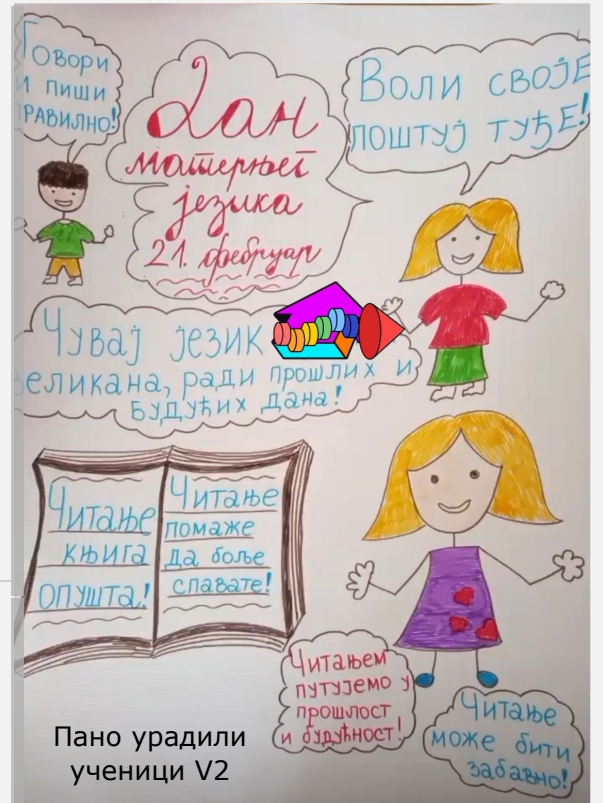 Говори
и пиши
правилно!
Дан
матерњег
језика
21. фебруар
Воли своје
поштуј туђе!
Чувај језик
великана, ради прошлих и
будућих дана!
Читање
књига
опушта!
Читање
помаже
да боље
спавате!
Читањем
путујемо у
прошлост
и будућност!
Читање
може бити
забавно!
Пано урадили
ученици V2